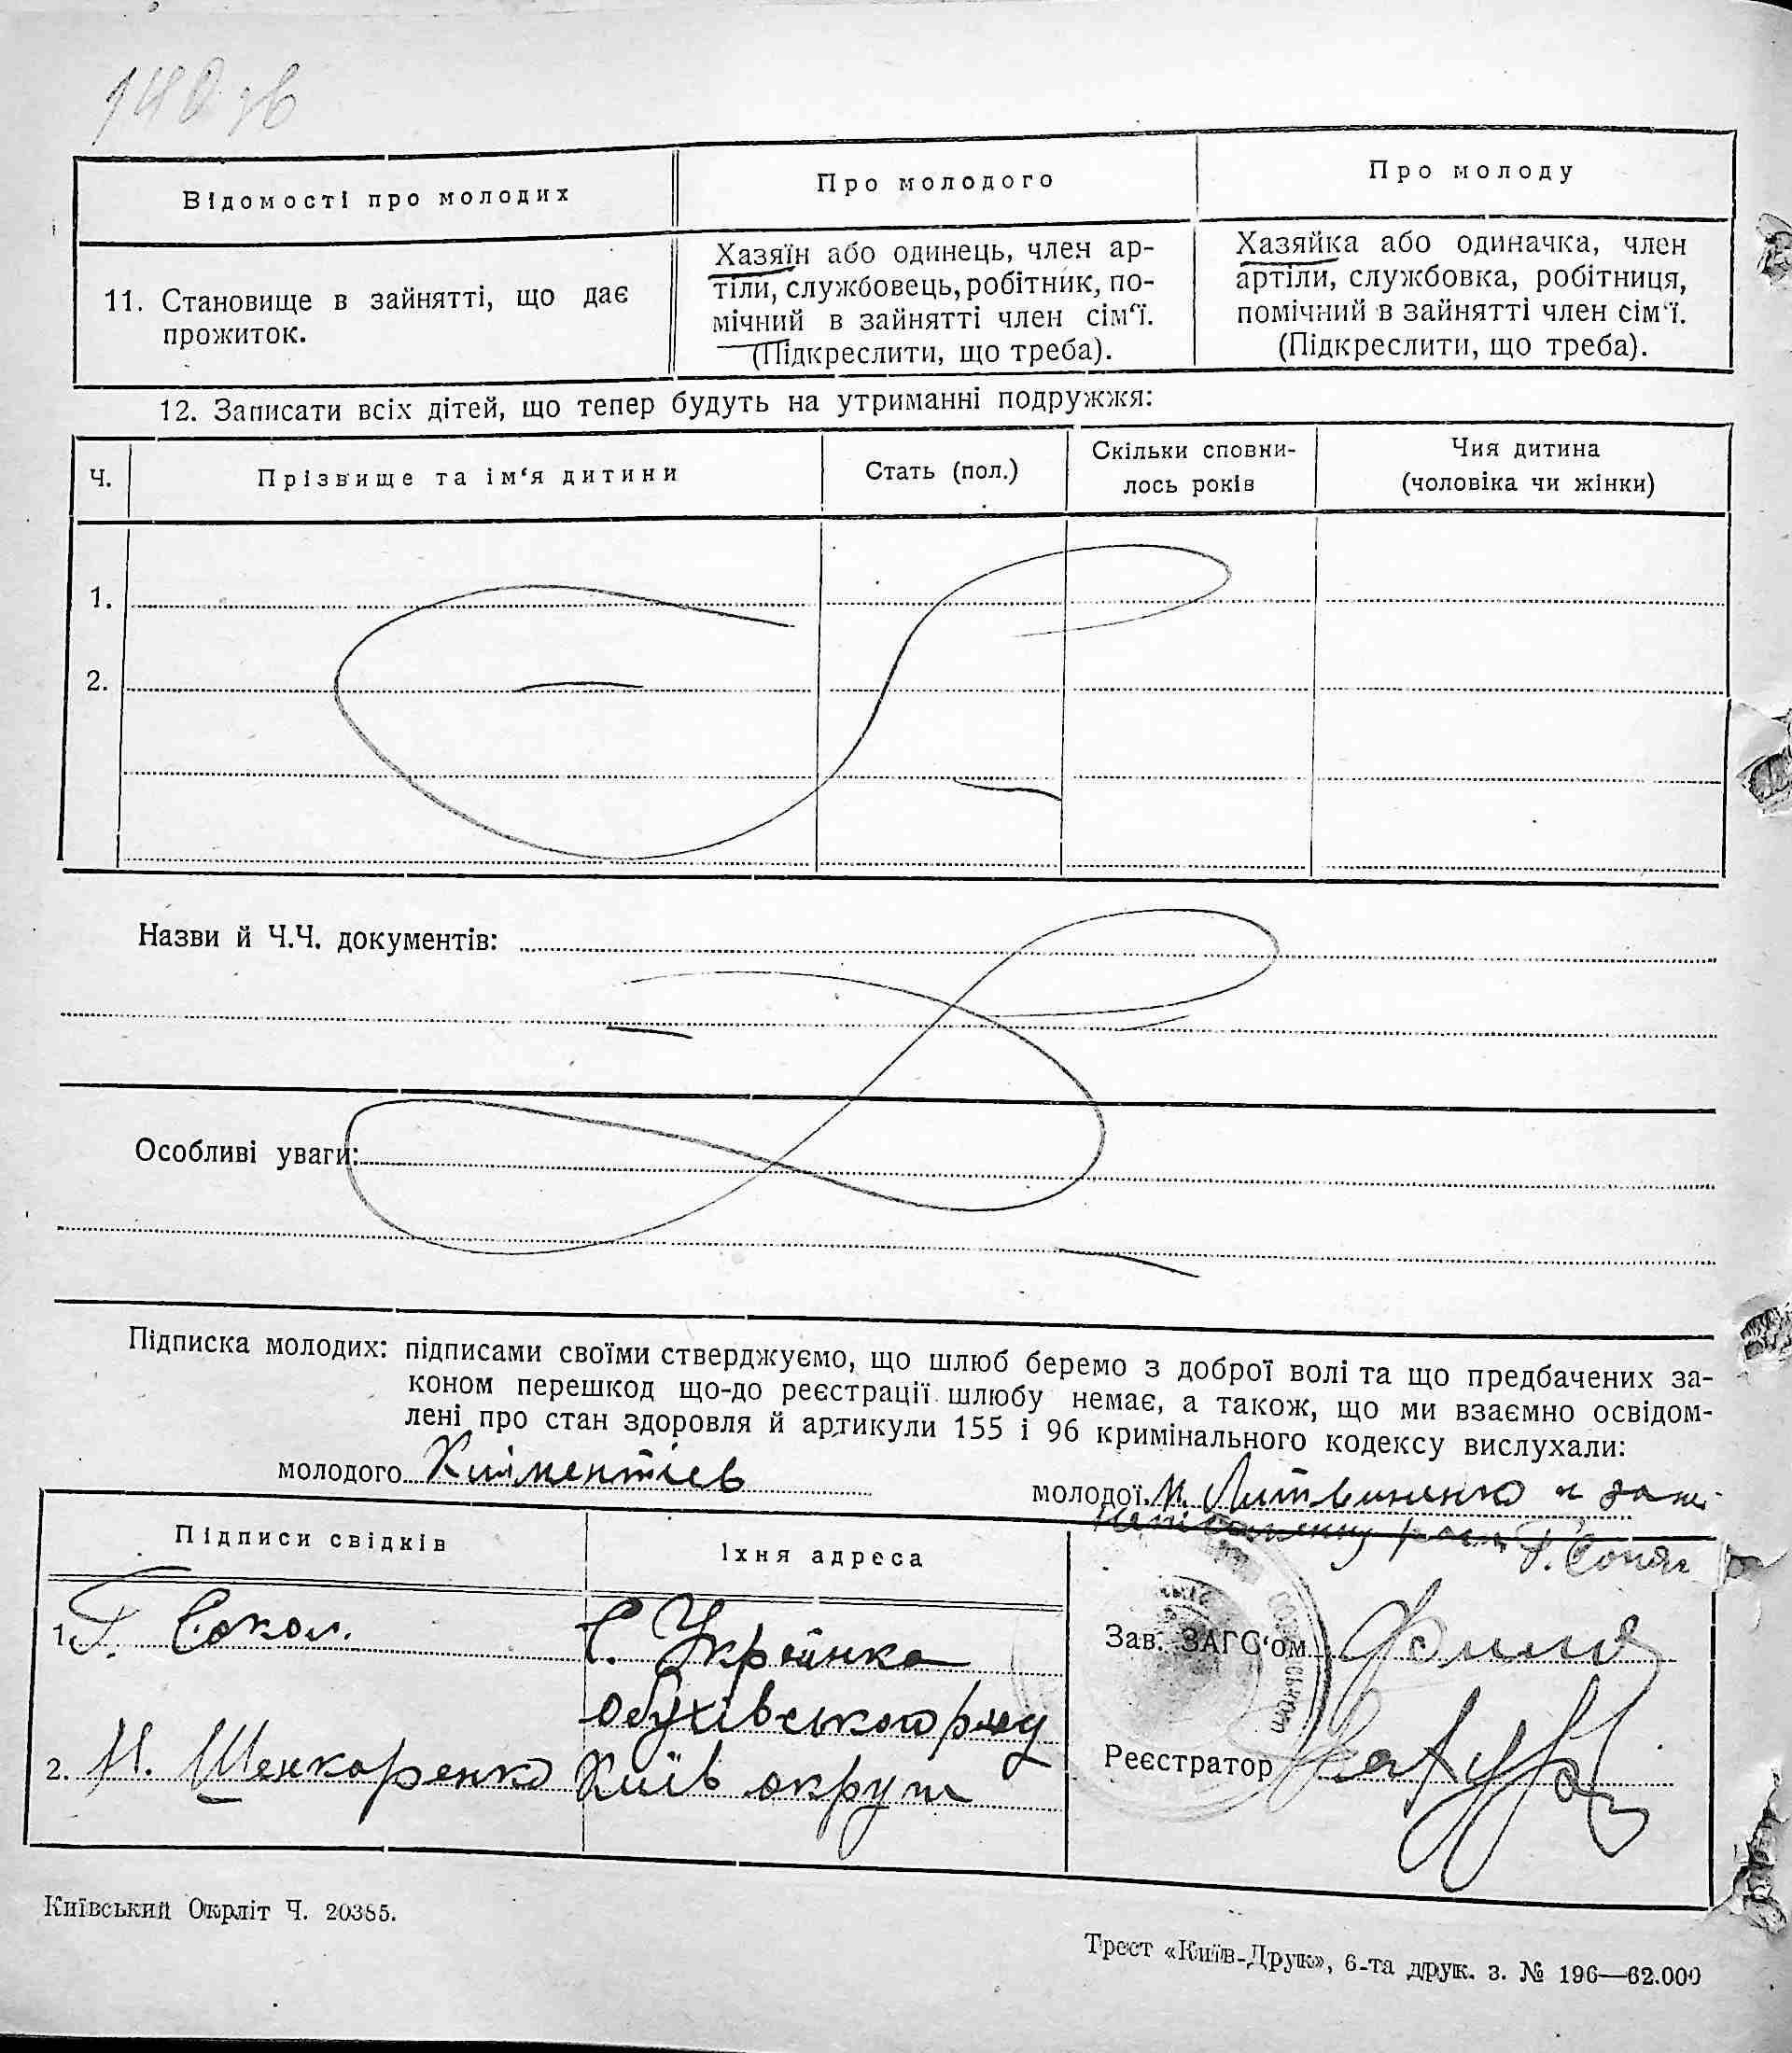 140 зв
Відомості про молодих
Про молодого
Про молоду
11. Становище в зайнятті, що дає
прожиток.
Хазяїн або одинець, член ар-
тіли, службовець, робітник, по-
мічний в зайнятті член сім‘ї.
(Підкреслити, що треба).
Хазяйка або одиначка, член
артіли, службовка, робітниця,
помічний в зайнятті член сім‘ї.
(Підкреслити, що треба).
12. Записати всіх дітей, що тепер будуть на утриманні подружжя:
Ч.
Прізвище та ім‘я дитини
Стать (пол.)
Скільки сповни-
лось років
Чия дитина
(чоловіка чи жінки)
1.
2.
Назви й Ч.Ч. документів:
Особливі уваги:
Підписка молодих: підписами своїми стверджуємо, що шлюб беремо з доброї волі та що предбачених за-
коном перешкод що-до реєстрації шлюбу немає, а також, що ми взаємно освідом-
лені про стан здоровля й артикули 155 і 96 кримінального кодексу вислухали:
молодого Климентіев
молодої М. Литвиненко а за
Г. Сокол
Підписи свідків
Їхня адреса
1. Г. Сокол.
С. Українка
Обухівського рад
2. М. Шенкаренко
Київ округи
Зав. ЗАГС‘ом
Реєстратор
Київський Окрліт Ч. 20385.
Трест «Київ-Друк», 6-та друк. з. № 196—62.000